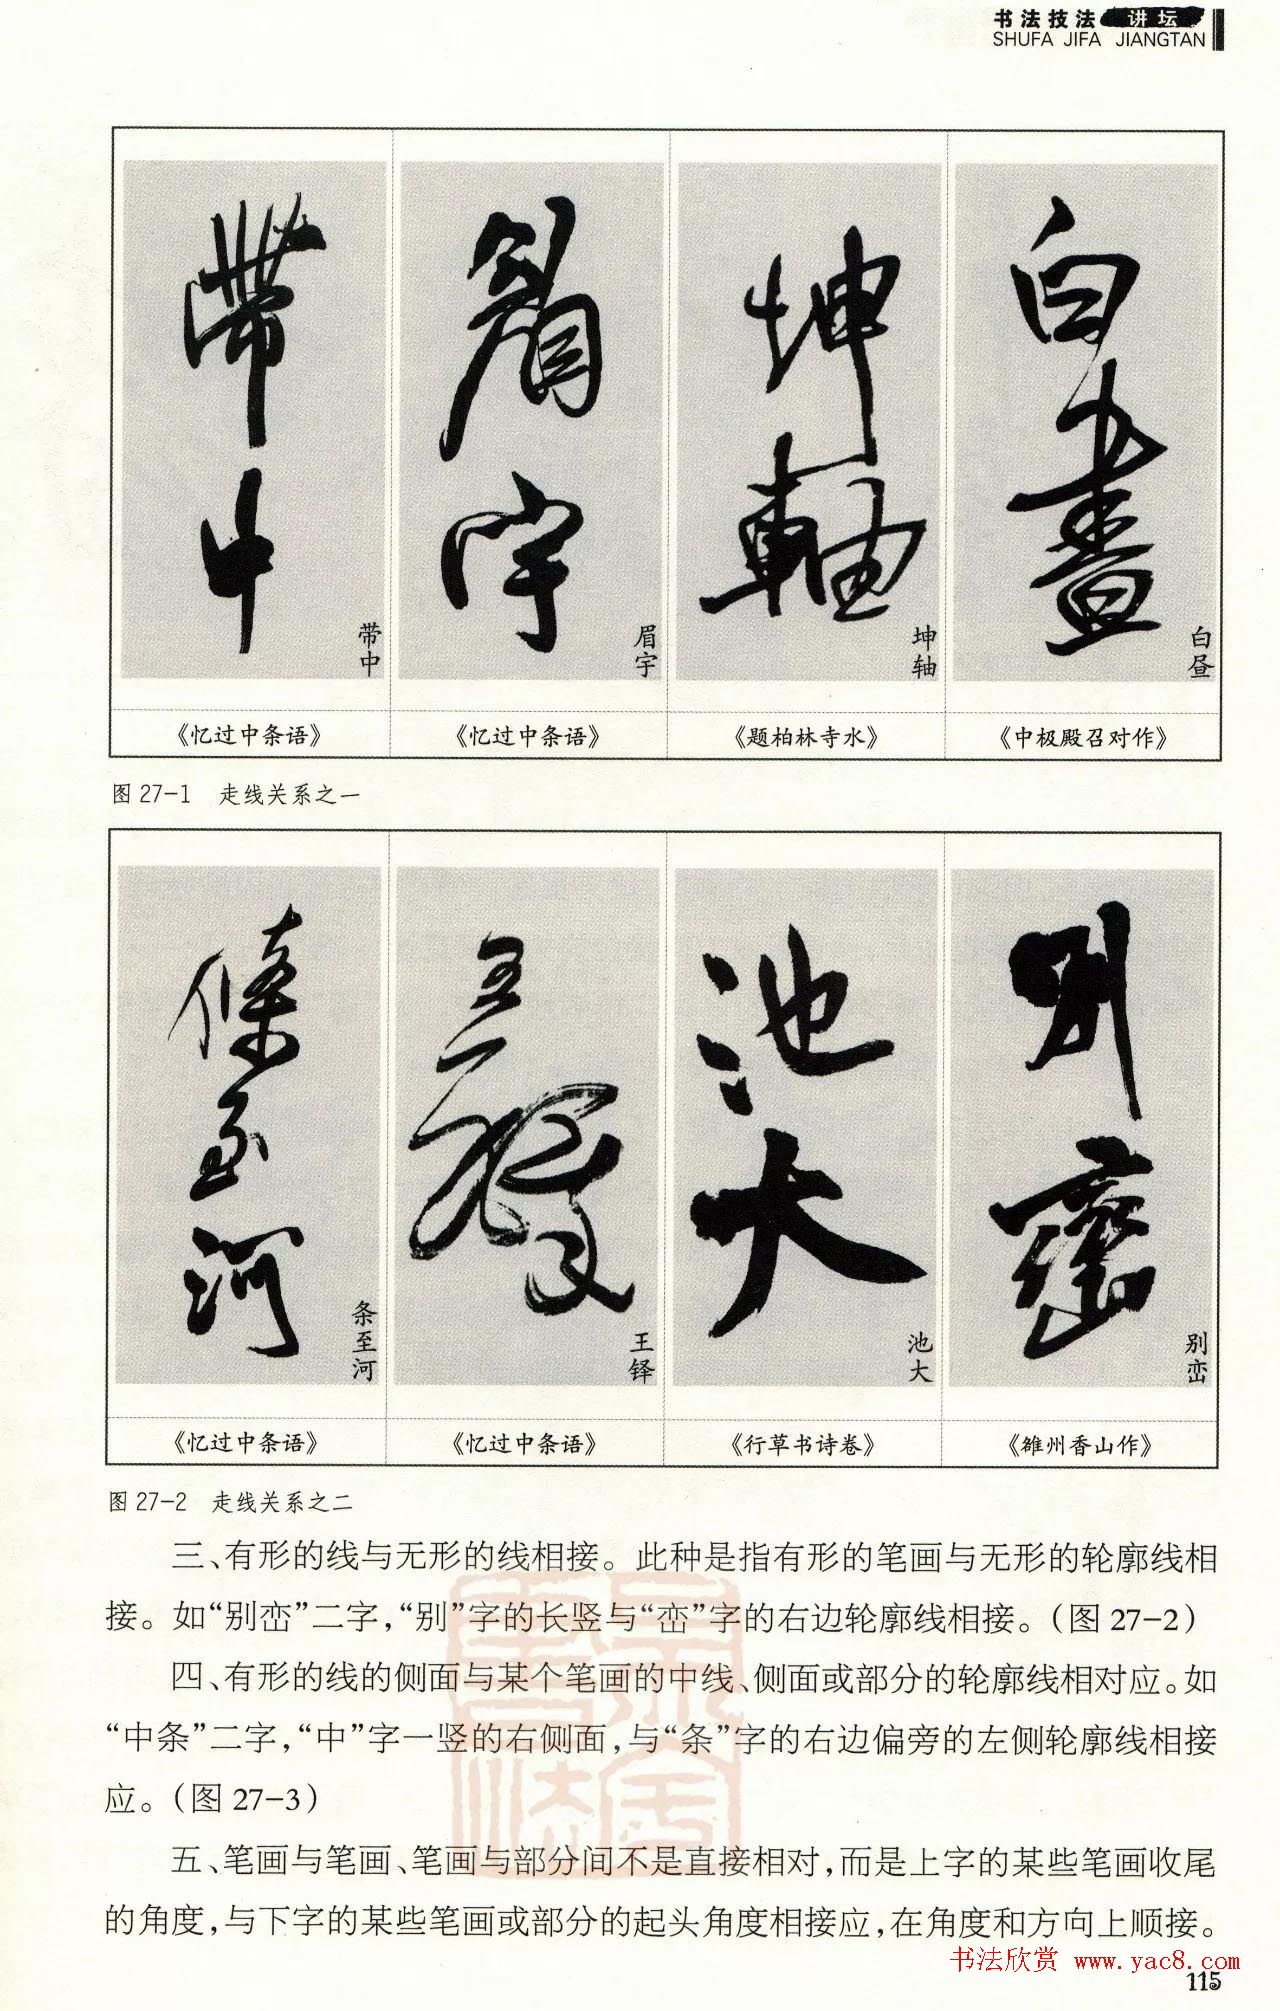 书法技法 讲坛
SHUFA JIFA JIANGTAN
带中
眉宇
坤轴
白昼
《忆过中条语》
《忆过中条语》
《题柏林寺水》
《中极殿召对作》
图 27-1 走线关系之一
条至河
王铎
池大
别峦
《忆过中条语》
《忆过中条语》
《行草书诗卷》
《雒州香山作》
图 27-2 走线关系之二
三、有形的线与无形的线相接。此种是指有形的笔画与无形的轮廓线相
接。如“别峦”二字，“别”字的长竖与“峦”字的右边轮廓线相接。（图 27-2）
四、有形的线的侧面与某个笔画的中线、侧面或部分的轮廓线相对应。如
“中条”二字，“中”字一竖的右侧面，与“条”字的右边偏旁的左侧轮廓线相接
应。（图 27-3）
五、笔画与笔画、笔画与部分间不是直接相对，而是上字的某些笔画收尾
的角度，与下字的某些笔画或部分的起头角度相接应，在角度和方向上顺接。
书法欣赏 www.yac8.com
115